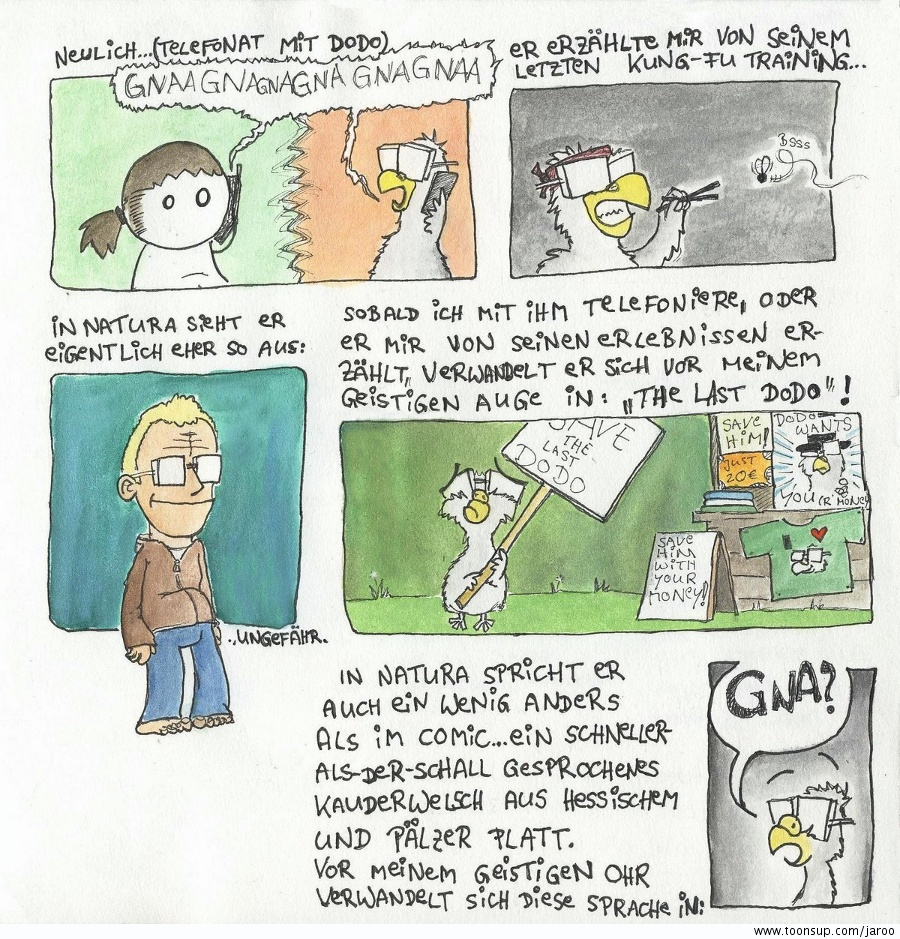 NEULICH...(TELEFONAT MIT DODO)
GNAA GNAGNAGNA GNAGNAA
ER ERZÄHLTE MIR VON SEINEM
LETZTEN KUNG-FU TRAINING...
BSSS
IN NATURA SIEHT ER
EIGENTLICH EHER SO AUS:
...UNGEFÄHR.
SOBALD ICH MIT IHM TELEFONIERE, ODER
ER MIR VON SEINEN ERLEBNISSEN ER-
ZÄHLT, VERWANDELT ER SICH VOR MEINEM
GEISTIGEN AUGE IN: „THE LAST DODO"!
SAVE
THE
LAST
DODO
SAVE
HIM!
JUST
20€
DODO
WANTS
YOU(R MONEY)
SAVE
HIM
WITH
YOUR
MONEY!
I
IN NATURA SPRICHT ER
AUCH EIN WENIG ANDERS
ALS IM COMIC...EIN SCHNELLER-
ALS-DER-SCHALL GESPROCHENES
KAUDERWELSCH AUS HESSISCHEM
UND PÄLZER PLATT.
VOR MEINEM GEISTIGEN OHR
VERWANDELT SICH DIESE SPRACHE IN:
GNA?
www.toonsup.com/jaroo